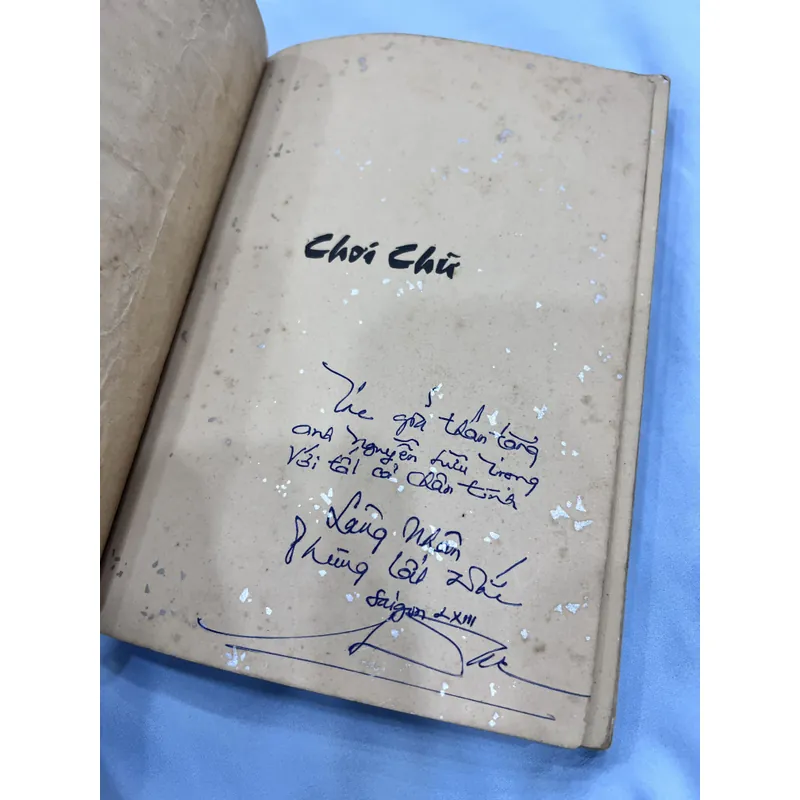 Chơi Chữ
Tác giả thân tặng
anh Nguyễn Hữu Trọng
Với tất cả chân tình
Lãng Nhân
Phùng Tất Đắc
Saigon LXIII